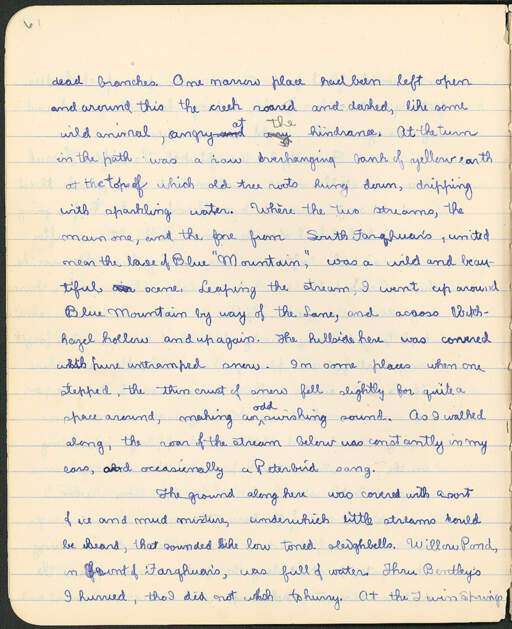 61
dead branches. One narrow place had been left open
and around this the creek roared and dashed, like some
wild animal, angry at the hindrance. At the turn
in the path was a low overhanging bank of yellow earth
at the top of which old tree roots hung down, dripping
with sparkling water. Where the two streams, the
main one, and the one from South Farquhar's, united
near the base of Blue "Mountain", was a wild and beau-
tiful scene. Leaping the stream, I went up around
Blue Mountain by way of the Lane, and across Witch-
hazel hollow and up again. The hillside here was covered
with pure untramped snow. In some places when one
stepped, the thin crust of snow fell slightly for quite a
space around, making an odd swishing sound. As I walked
along, the roar of the stream below was constantly in my
ears, and occasionally a Peterbird sang.
The ground along here was covered with a sort
of ice and mud mixture, under which little streams could
be heard, that sounded like low toned sleighbells. Willow Pond,
in front of Farquhar's, was full of water. Thru Bentley's
I hurried, tho I did not wish to hurry. At the Twin Springs